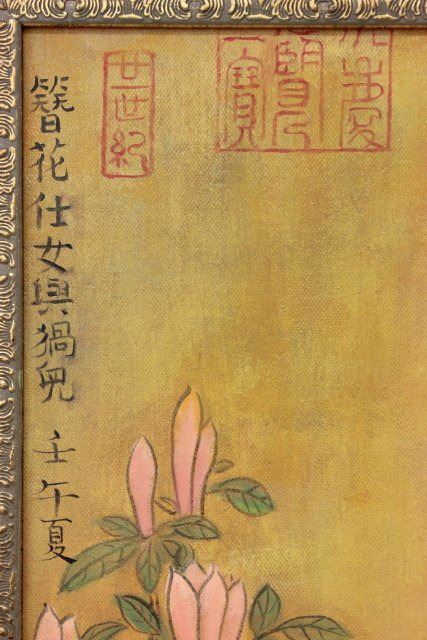 寶
廿世紀
簪花仕女與猧兒 壬午夏